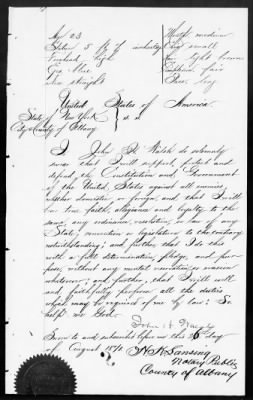 Age 23
Stature 5 ft 7 inches
Forehead high
Eyes blue
Nose straight
Mouth medium
Chin small
Hair light brown
Complexion fair
Face long
United States of America.
State of New York
City & County of Albany } s.s.
I John H. Walsh do solemnly
swear that I will support, protect and
defend, the Constitution and Government
of the United States against all enemies
whether domestic or foreign, and, that I will
bear true faith, allegiance and loyalty to the
same, any ordinance, resolution, or law of any
State, convention or legislature to the contrary
notwithstanding; and further, that I do this
with a full determination, pledge, and pur-
pose, without any mental reservation or evasion
whatsoever; and further, that I will well
and faithfully perform all the duties
which may be required of me by law: So
help me God.
John H. Walsh
Sworn to and subscribed before me this 26 day
of August 18
N. H. Lansing
Notary Public
County of Albany